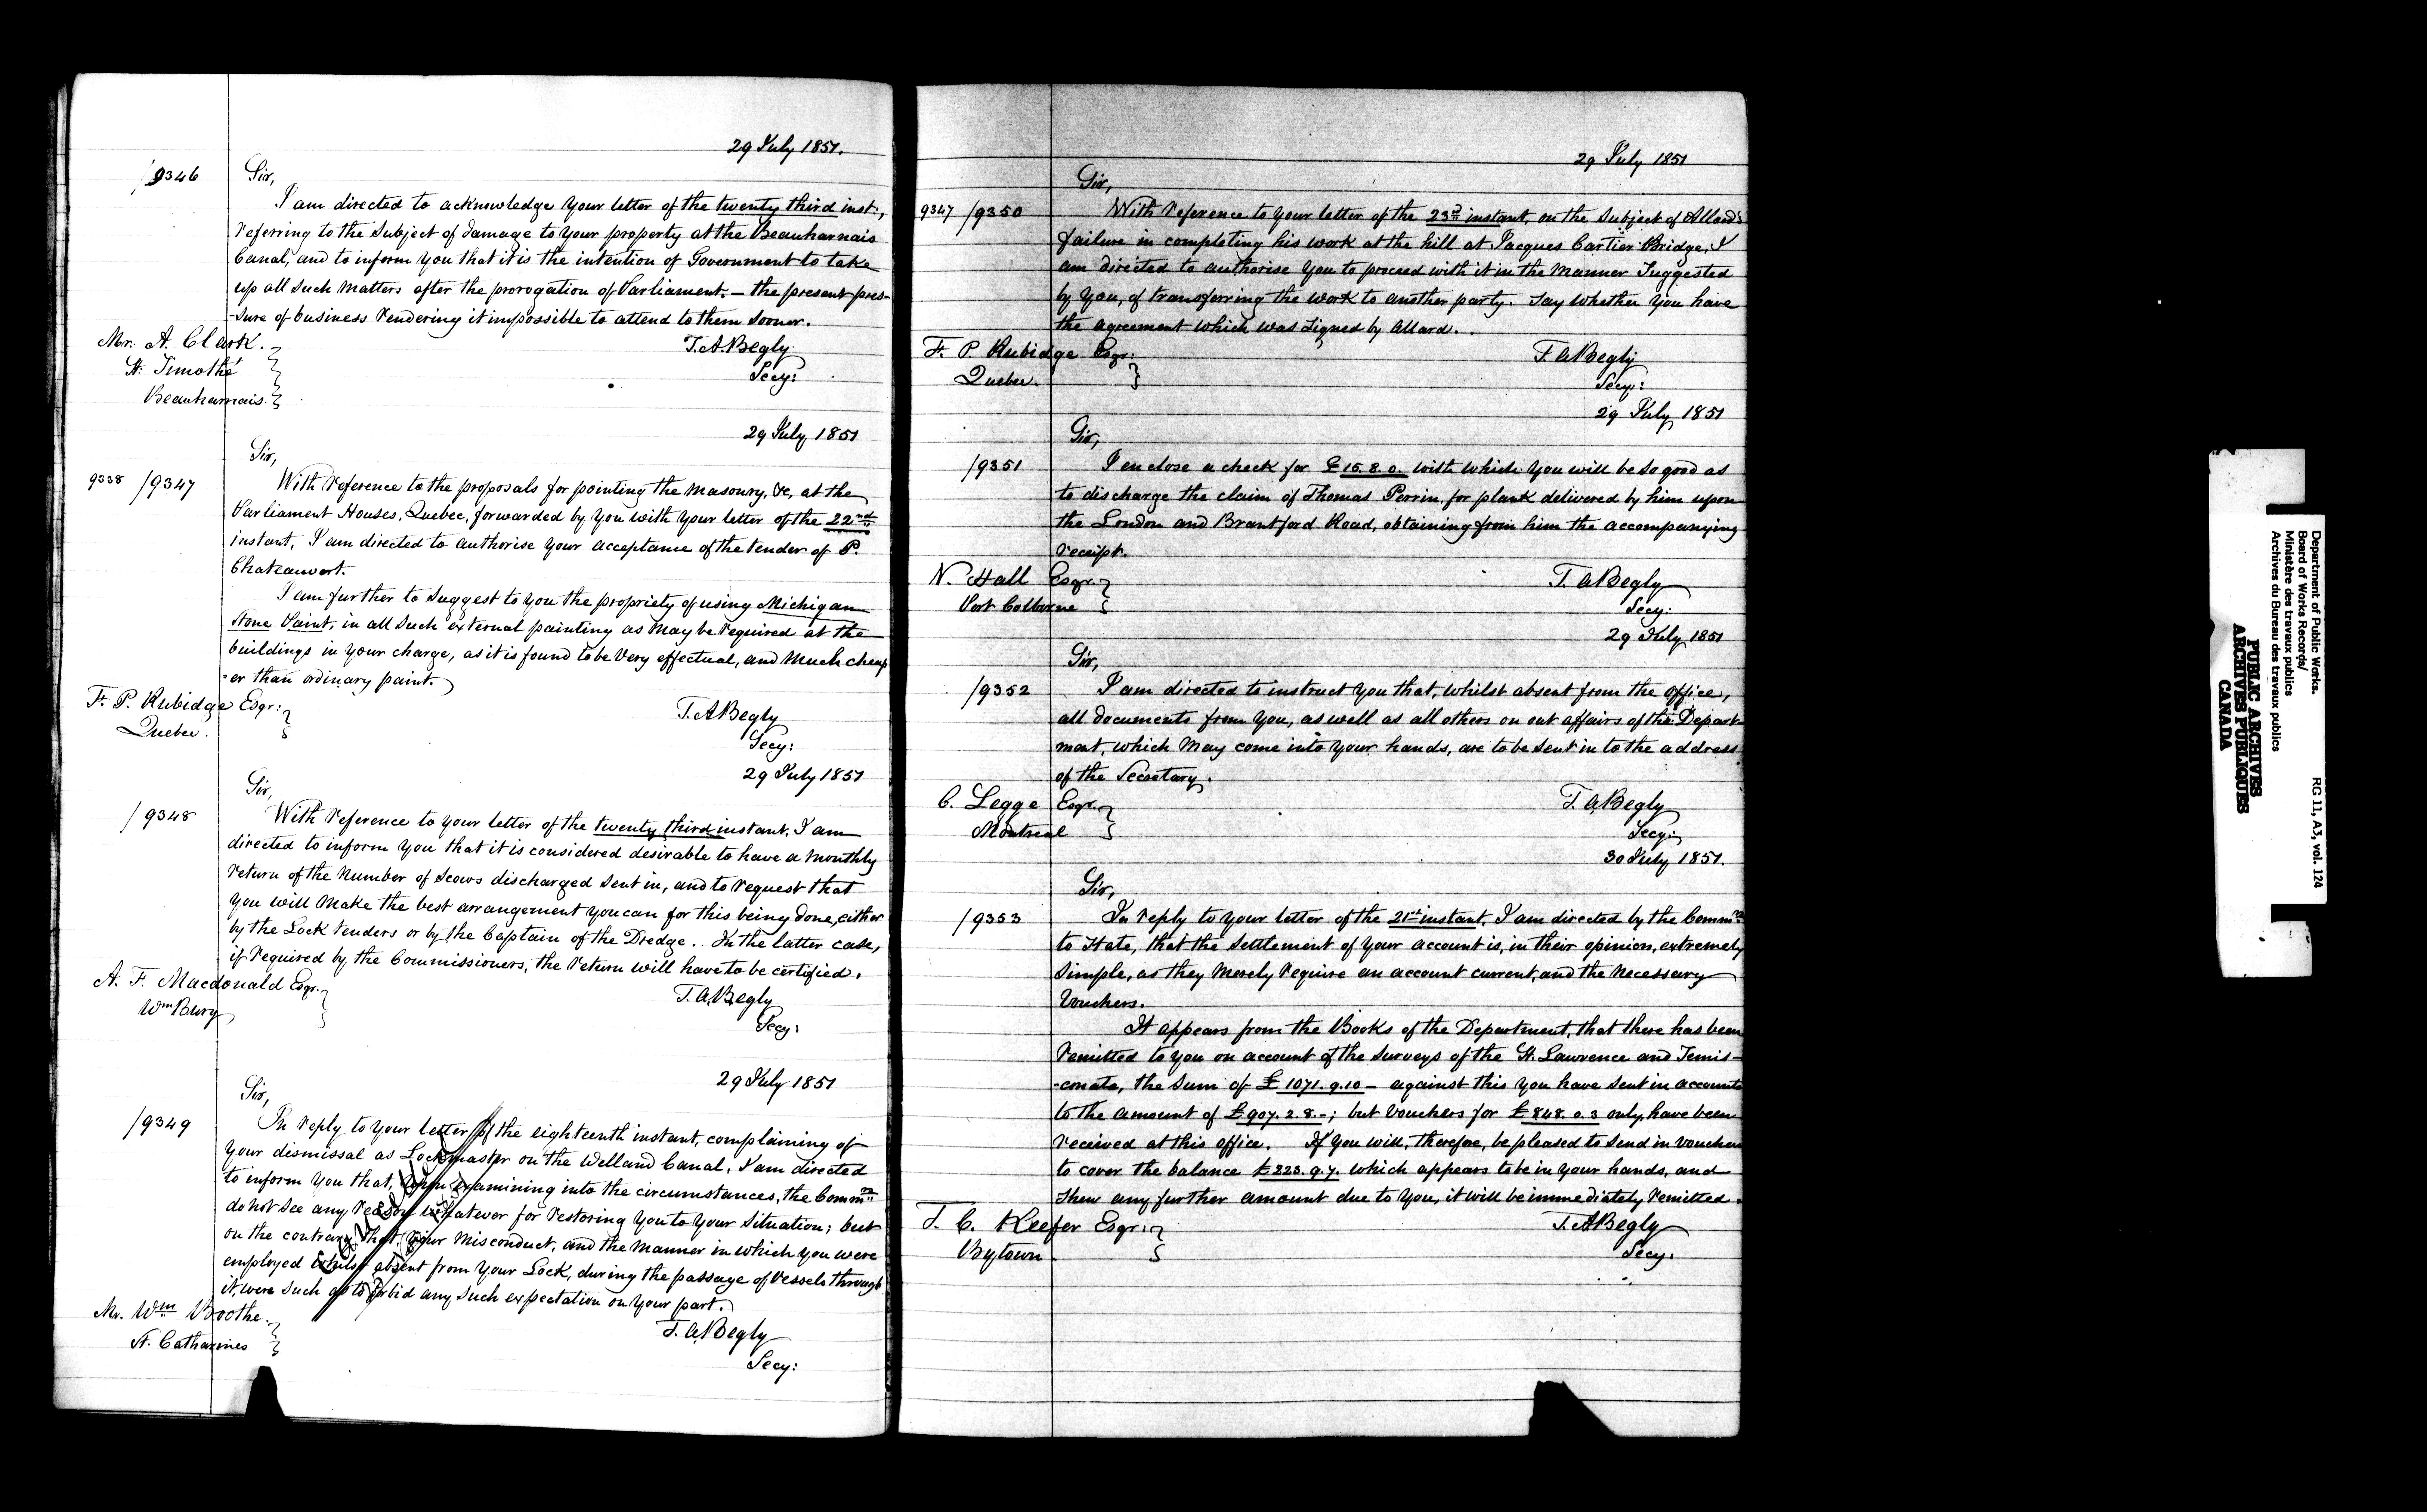 29 July 1851.
/9346
Sir,
I am directed to acknowledge your letter of the twenty third inst.,
referring to the subject of damage to your property at the Beauharnais
Canal, and to inform you that it is the intention of Government to take
up all such matters after the prorogation of Parliament. – the present pres-
-sure of business rendering it impossible to attend to them sooner.
Mr. A. Clark.
St. Timothé
Beauharnais.
T. A. Begly
Secy:
29 July 1851
Sir,
9338 /9347
With reference to the proposals for pointing the masonry, &c, at the
Parliament Houses, Quebec, forwarded by you with your letter of the 22nd
instant, I am directed to authorise your acceptance of the tender of P.
Chateauvert.
I am further to suggest to you the propriety of using Michigan
Stone Paint, in all such external painting as may be required at the
buildings in your charge, as it is found to be very effectual, and much cheap
-er than ordinary paint.
F. P. Rubidge Esqr:
Quebec.
T. A. Begly
Secy:
29 July 1851
Sir,
/9348
With reference to your letter of the twenty third instant, I am
directed to inform you that it is considered desirable to have a monthly
return of the number of scows discharged sent in, and to request that
you will make the best arrangement you can for this being done, either
by the Lock tenders or by the Captain of the Dredge. In the latter case,
if required by the Commissioners, the return will have to be certified.
A. F. Macdonald Esqr.
Wm Burg
T. A. Begly
Secy:
29 July 1851
Sir,
/9349
In reply to your letter of the eighteenth instant, complaining of
your dismissal as Lockmaster on the Welland Canal, I am directed
to inform you that, upon examining into the circumstances, the Commrs
do not see any reason whatever for restoring you to your situation; but
on the contrary that your misconduct, and the manner in which you were
employed whilst absent from your Lock, during the passage of vessels through
it, were such as to forbid any such expectation on your part.
Cancelled
Mr. Wm Boothe.
St. Catharines
T. A. Begly
Secy:
29 July 1851
Sir,
9347 /9350
With reference to your letter of the 23rd instant, on the subject of Allard's
failure in completing his work at the hill at Jacques Cartier Bridge, I
am directed to authorise you to proceed with it in the manner suggested
by you, of transferring the work to another party. Say whether you have
the agreement which was signed by Allard.
F. P. Rubidge Esqr:
Quebec.
T. A. Begly
Secy:
29 July 1851
Sir,
/9351
I enclose a check for £15.8.0. with which you will be so good as
to discharge the claim of Thomas Perrin, for plank delivered by him upon
the London and Brantford Road, obtaining from him the accompanying
receipt.
N. Hall Esqr.
Port Colborne
T. A. Begly
Secy:
29 July 1851
Sir,
/9352
I am directed to instruct you that, whilst absent from the office,
all documents from you, as well as all others on out affairs of the Depart-
ment, which may come into your hands, are to be sent in to the address
of the Secretary.
C. Legge Esqr.
Montreal
T. A. Begly
Secy:
30 July 1851.
Sir,
/9353
In reply to your letter of the 21st instant, I am directed by the Commrs
to state, that the settlement of your account is, in their opinion, extremely
simple, as they merely require an account current, and the necessary
vouchers.
It appears from the Books of the Department, that there has been
remitted to you on account of the surveys of the St. Lawrence and Temis-
-couata, the sum of £1071.9.10 – against this you have sent in accounts
to the amount of £907.2.8.–; but vouchers for £848.0.3 only, have been
received at this office. If you will, therefore, be pleased to send in vouchers
to cover the balance £223.9.7. which appears to be in your hands, and
shew any further amount due to you, it will be immediately remitted.
T. C. Keefer Esqr:
Bytown
T. A. Begly
Secy:
Department of Public Works.
Board of Works Records/
Ministère des travaux publics
Archives du Bureau des travaux publics
RG 11, A3, vol. 124
PUBLIC ARCHIVES
ARCHIVES PUBLIQUES
CANADA